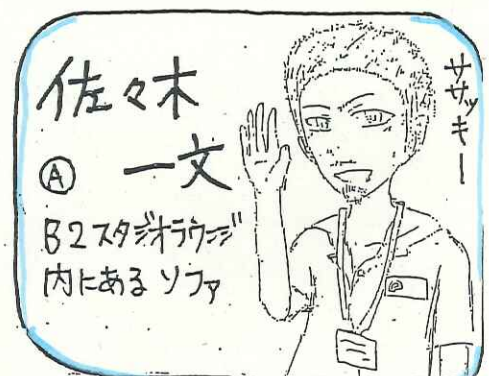 佐々木
Ⓐ 一文
B2スタジオラウンジ
内にある ソファ
ササッキー